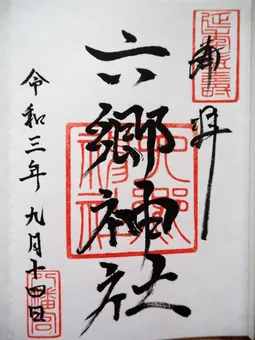 奉拝
六郷神社
令和三年九月十四日